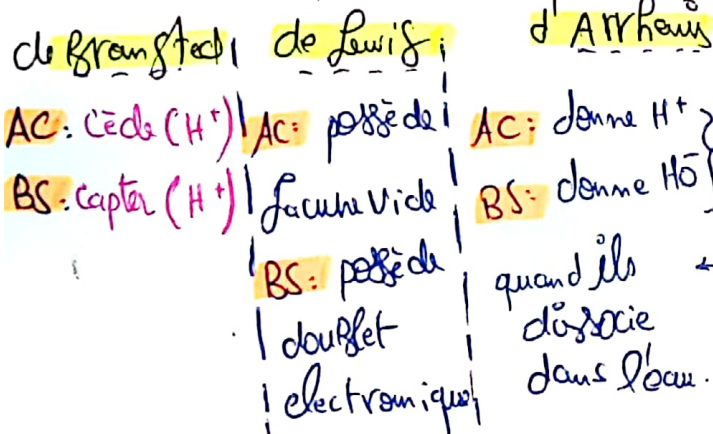 de Bronsted
AC: cède (H+)
BS: capter (H+)
de Lewis
AC: possède
lacune vide
BS: possède
doublet
electronique
d'Arrhenius
AC: donne H+
BS: donne HO-
quand ils
dissocie
dans l'eau.